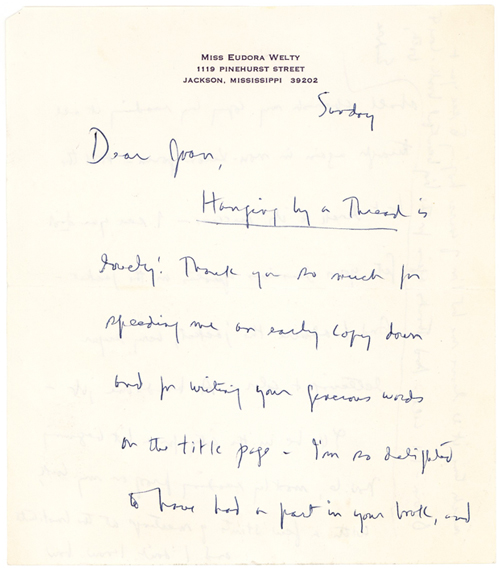 MISS EUDORA WELTY
1119 PINEHURST STREET
JACKSON, MISSISSIPPI 39202
Sunday
Dear Joan,
Hanging by a Thread is
lovely! Thank you so much for
speeding me an early copy down
and for writing your generous words
on the title page – I'm so delighted
to have had a part in your book, and